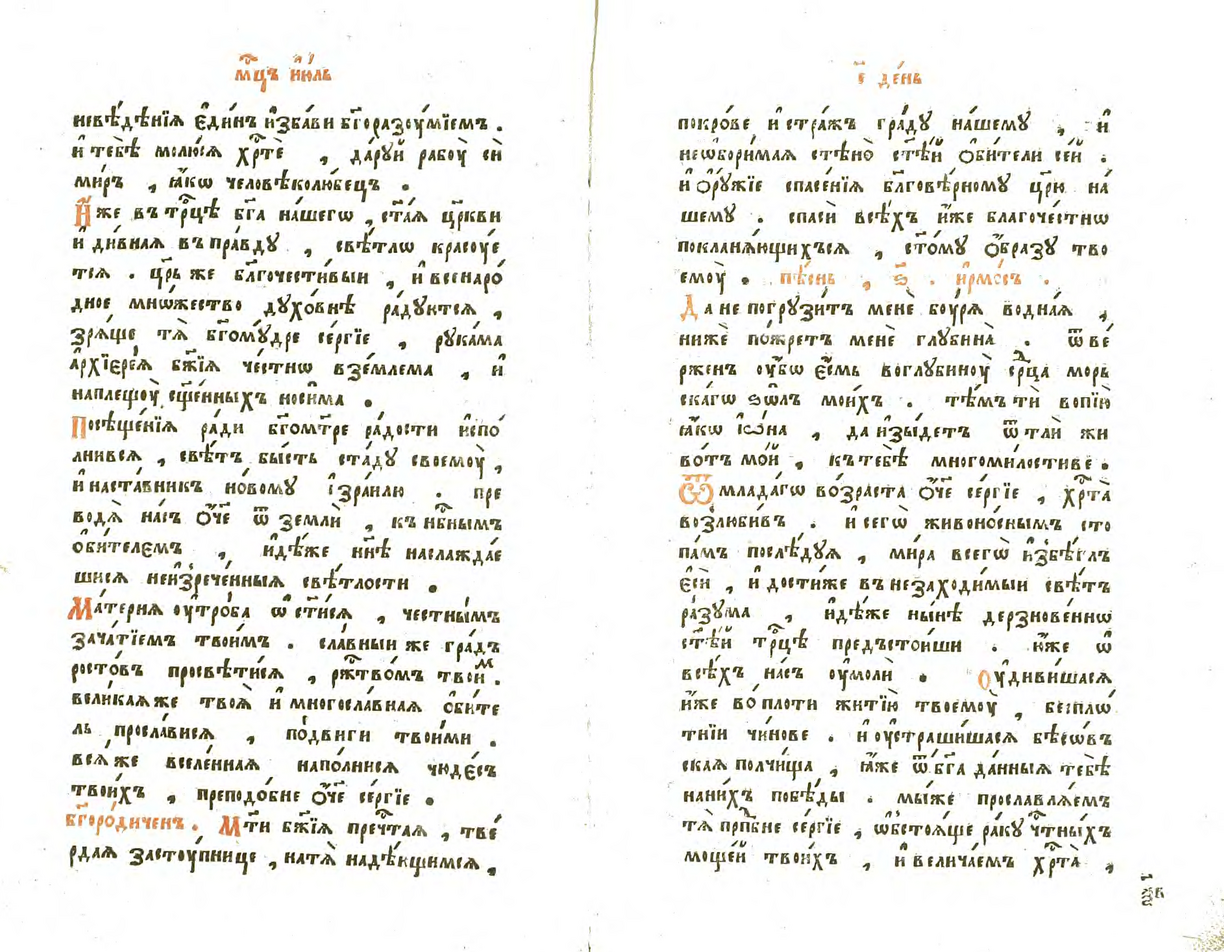 мц҃ъ і҆ю́ль
невѣ́дѣнїѧ є҆ди́нъ и҆зба́ви бг҃оразꙋ́мїемъ .
и҆ тебѣ̀ молю́сѧ хр҃тѐ , да́рꙋй рабꙋ̀ сѝ
ми́ръ , ꙗ҆́кѡ человѣколю́бецъ .
И҆́же въ тр҃цѣ бг҃а на́шегѡ , ст҃а́ѧ цр҃кви
и҆ ди́внаѧ въ пра́вдꙋ , свѣ́тлѡ красꙋ́е
тсѧ . цр҃ь же бл҃гочести́выи , и҆ всенаро́
дное мно́жество дꙋхо́внѣ ра́дꙋютсѧ ,
зрѧ́ще тѧ̀ бг҃омꙋ́дре се́ргїе , рꙋка́ма
а҆рхїере́ѧ бж҃їѧ че́стнѡ взе́млема , и҆
наплещꙋ̀ сщ҃е́нныхъ носи́ма .
Посѣще́нїѧ ра́ди бг҃омт҃ре ра́дости и҆спо́
лнивсѧ , свѣ́тъ бы́сть ста́дꙋ своемꙋ̀ ,
и҆ наста́вникъ но́вомꙋ і҆зра́илю . пре
водѧ̀ на́съ ѻ҆́че ѿ землѝ , къ нб҃нымъ
ѻ҆би́телемъ , и҆дѣ́же нн҃ѣ наслажда́е
шисѧ неи҆зрече́нныѧ свѣ́тлости .
Ма́тернѧ ᲂу҆тро́ба ѡ҆ст҃и́сѧ , че́стны́мъ
зача́тїемъ твои́мъ . сла́вныи же гра́дъ
росто́въ просвѣти́сѧ , рж҃тво́мъ твои́м .
вели́каѧже твоѧ̀ и҆ многосла́внаѧ ѻ҆би́те
ль просла́висѧ , по́двиги твои́ми .
всѧ́ же вселе́ннаѧ напо́лнисѧ чюде́съ
твои́хъ , преподо́бне ѻ҆́че се́ргїе .
бг҃оро́диченъ . Мт҃и бж҃їѧ преч҃таѧ , тве́
рдаѧ застꙋ́пнице , натѧ̀ надѣ́ющимсѧ ,
і҃ де́нь
покро́ве и҆ стра́жъ гра́дꙋ на́шемꙋ , и҆
неѡбори́маѧ стѣно̀ ст҃ѣ́й ѻ҆би́тели се́й .
и҆ ѻ҆рꙋ́жїе спасе́нїѧ бл҃говѣ́рномꙋ цр҃ю на́
шемꙋ . спасѝ всѣ́хъ и҆́же благоче́стнѡ
поклана́ющихъсѧ , ст҃о́мꙋ ѻ҆́бразꙋ тво
емꙋ̀ . пѣ́снь , ѕ҃ . и҆рмо́съ .
Да не погрꙋзи́тъ менѐ бꙋ́рѧ водна́ѧ ,
нижѐ пожре́тъ менѐ глꙋбина̀ . ѿве́
рженъ ᲂу҆́бѡ є҆́смь воглꙋбинꙋ̀ ср҃дца морь
ска́гѡ ѕѡ́лъ мои́хъ . тѣ́мъ ти вопїю̀
ꙗ҆́кѡ і҆ѡ́на , да и҆зы́детъ ѿ тлѝ жи
во́тъ мо́й , къ тебѣ̀ многоми́лостиве .
Ѿ мла́дагѡ во́зраста ѻ҆́че се́ргїе , хр҃та̀
возлюби́въ . и҆ сегѡ̀ живоно́снымъ сто
па́мъ послѣ́дꙋѧ , ми́ра всегѡ̀ и҆збѣ́глъ
є҆сѝ , и҆ дости́же въ незаходи́мыи свѣ́тъ
ра́зꙋма , и҆дѣ́же ны́нѣ дерзнове́ннѡ
ст҃ѣ́й тр҃цѣ предъстои́ши . ю҆́же ѡ҆
всѣ́хъ на́съ ᲂу҆молѝ . Оу҆диви́шасѧ
и҆́же во́ плоти житїю̀ твоемꙋ̀ , бесплѡ́
тнїи чи́нове . и҆ ᲂу҆страши́шасѧ бѣсѡ́въ
скаѧ полчи́ща , ꙗ҆́же ѿ бг҃а да́нныѧ тебѣ̀
нани́хъ побѣ́ды . мы́же прославлѧ́емъ
тѧ̀ прп҃бне се́ргїе , ѡ҆бстоѧ́ще ра́кꙋ чт҃ны́хъ
моще́й твои́хъ , и҆ велича́емъ хр҃та̀ ,